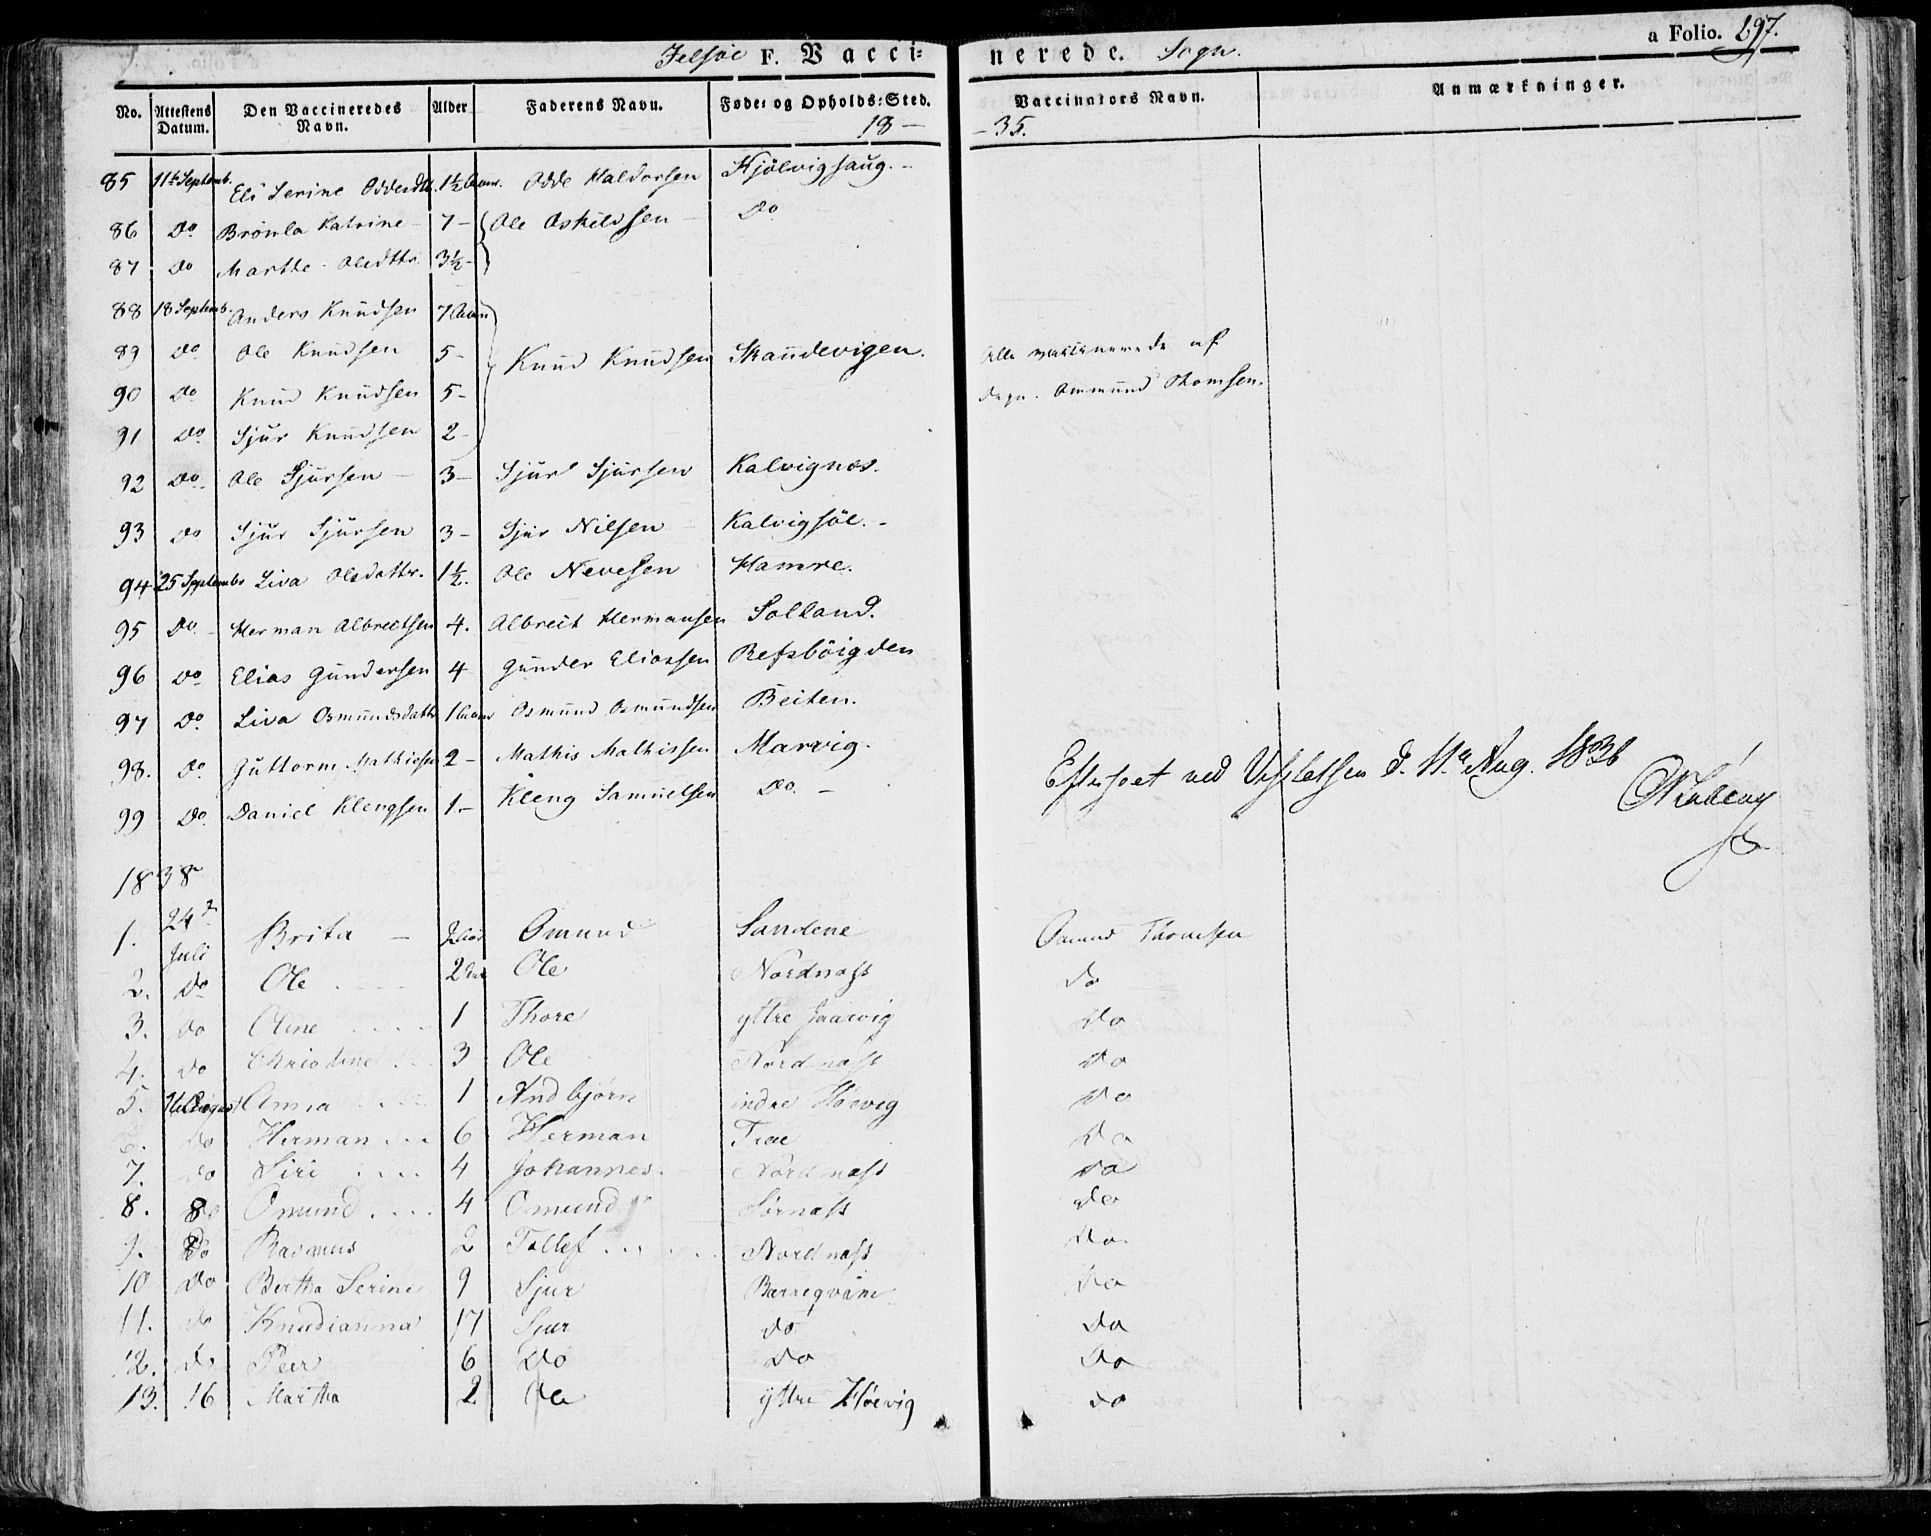 Jelsöe F. Vaccinerede. Sogn. a Folio. 297.
No. Attestens Datum. Den Vaccineredes Navn. Alder Faderens Navn. Føde= og Opholds=Sted. Vaccinators Navn. Anmærkninger.
18— —35.
85 11te Septemb. Eli Serine Oddesdtr. 1½ Odde Haldorsen Hjölvigsaug. -
86 Do Brömla Katrine - 7 - Ole Oskildsen Do
87 Do Marthe Olsdttr. 3½ -
88 18 Septemb. Anders Knudsen 7
89 Do Ole Knudsen 5 - Knud Knudsen Skaudevigen. Alle vaccinerede af
90 Do Knud Knudsen 5 - Degn. Ommund Thomsen.
91 Do Sjur Knudsen 2 -
92 Do. Ole Sjursen - 3 - Sjur Sjursen Kalvignæs.
93 Do Sjur Sjursen 3 - Sjur Nilsen Kalvigsöe. -
94 25 Septembr Liva Olsdattr. 1½. Ole Nevesen Hamre.
95 Do - Herman Albrectsen 4. Albrect Hermansen Solland.
96 Do Elias Gundersen 4 Gunder Eliassen Refsböigden
97 Do. Liva Osmundsdattr 1 Osmund Osmundsen Beiten.
98. Do Guttorm Mathiesen 2 - Mathis Mathissen Marvig.
Efterseet ved Visitatsen d. 11te Aug. 1836
99 Do. Daniel Klengsen 1. - Kleng Samuelsen Do. -
1838
1. 24de Juli Brita - 2 Omund Sandene Omund Thomsen
2. Do Ole . . . 2 Ole Nordnæss do
3. Do Oline . . . . 1 Thore yttre Jaarvig Do
4. Do Christine . . 3 Ole Nordnæss Do
5. Anna . . . . 1 Andbjörn indre Hoevig Do
Do Herman . . . 6 Herman Træe Do
7. Do Siri . . . . 4 Johannes. Nordnæss Do
8. 8 Do Omund . . . . 4 Omund Sörnæss Do
9. Do Rasmus 2 Tollef . . . Nordnæss Do
10 Do Bertha Serine 9 Sjur Do
11. Do Knudianna 17 Sjur Do Do
12. Do Peer 6 Do Do Do
13. 16 Martha 2 Ole yttre Höevig Do